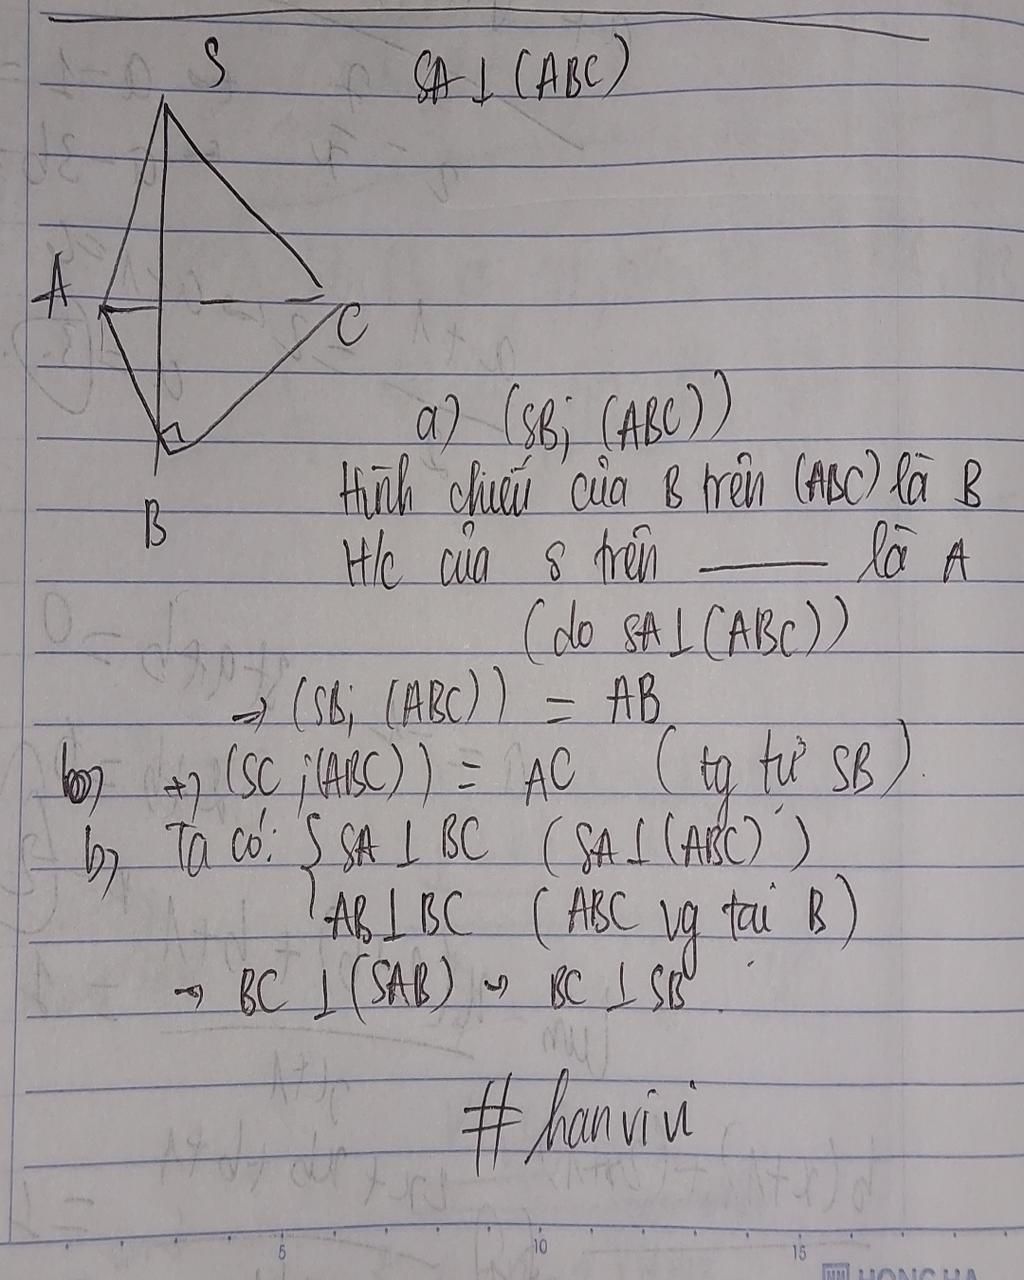 S
SA ⊥ (ABC)
A
C
B
a) (SB; (ABC))
Hình chiếu của B trên (ABC) là B
H/c của S trên ——— là A
(do SA ⊥ (ABC))
→ (SB; (ABC)) = AB
b) +) (SC; (ABC)) = AC (tg tự SB).
b) Ta có: { SA ⊥ BC (SA ⊥ (ABC))
AB ⊥ BC (ABC vg tại B)
→ BC ⊥ (SAB) → BC ⊥ SB.
#hanvivi
5 10 15
HONG HA